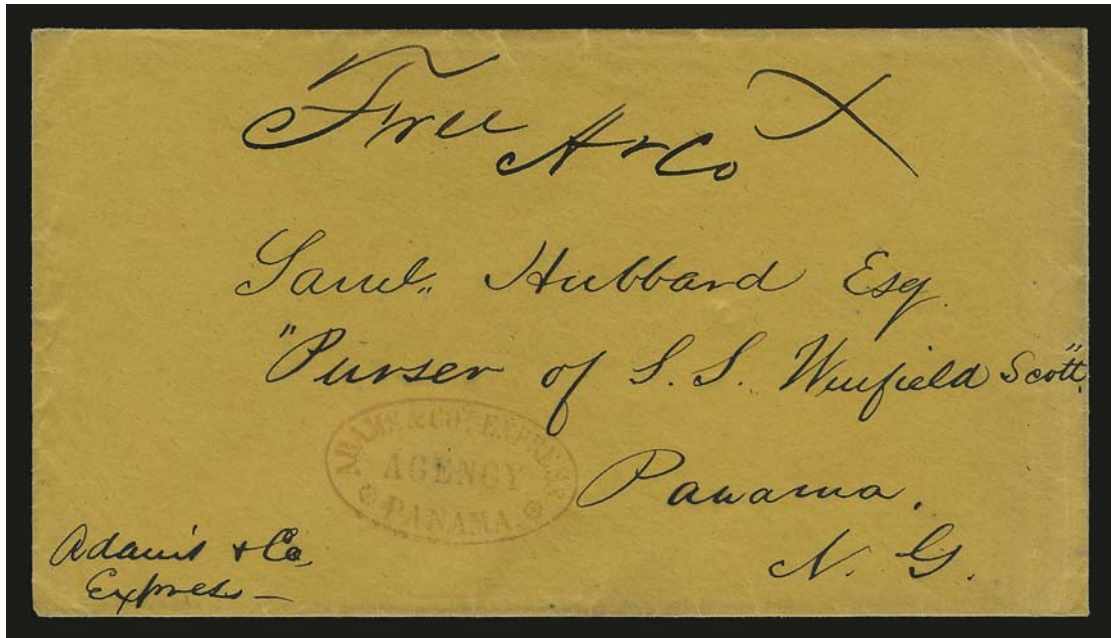 Free A & Co X
Saml. Hubbard Esq.
"Purser of S. S. Winfield Scott"
ADAMS & COS. EXPRESS
AGENCY
PANAMA.
Panama,
N. G.
Adams & Co,
Express —